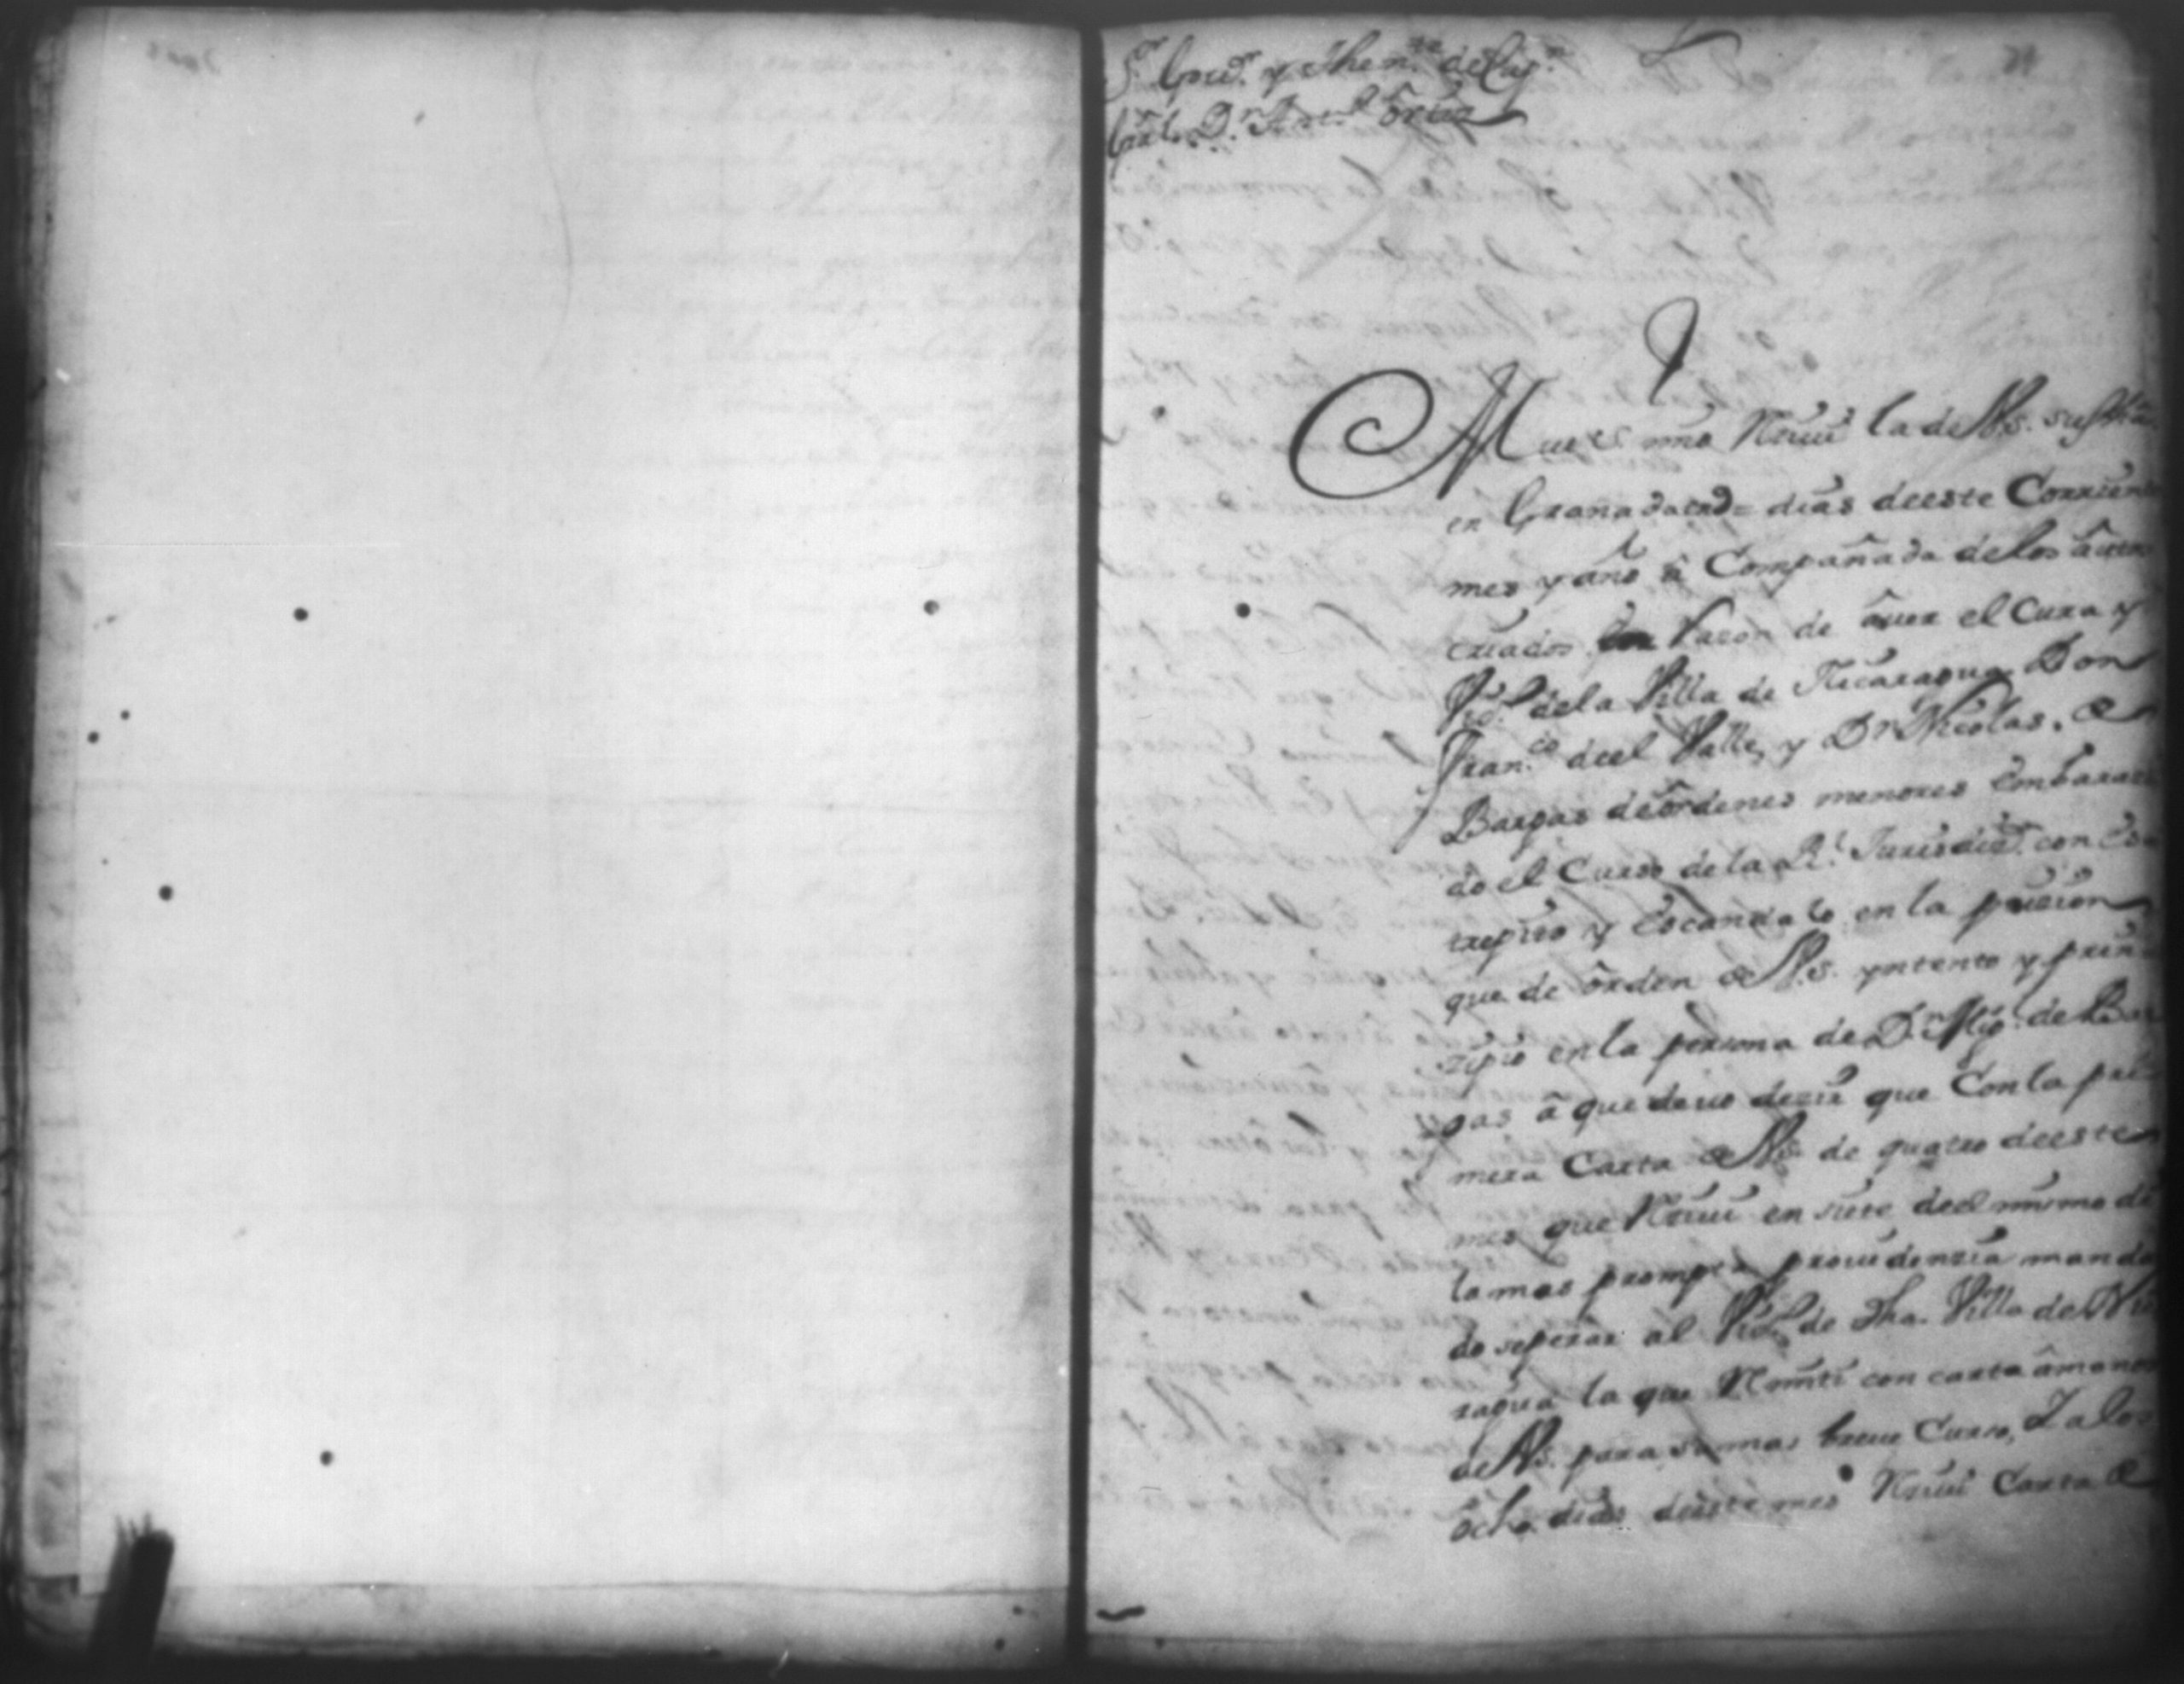 S.or Gov.or y Then.te de Cap.n
Gral. D.n Ant.o Ortiz
Mui S. mio Reciui la de V.S. su fha
en Granada en dias deeste Corriente
mes y año â Compañada delos âutos
criados en razon de âuer el Cura y
Vic.o dela Villa de Nicaragua Don
Fran.co deel Valle, y D.n Nicolas de
Bargas de ôrdenes menores Embaraza
do el Curso dela R.l Jurisdic.n con Es
trepito y Escandalo en la prission
que de ôrden de V.S. yntento y prin
zipio en la persona de D.n Mig.l de Bar
gas â que deuo dezir que Con la pri
mera Carta de V.S. de quatro deeste
mes que Reciui en siete deel mismo di
la mas prompta prouidenzia mandan
do separar al Vic.o de dha. Villa de Nica
ragua la que Remiti con carta âmanos
de V.S. para su mas breue Curso, Y a los
ôcho dias deeste mes Reciui Carta de